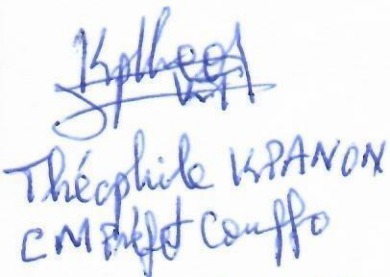 Théophile KPANON
CM Préfet Couffo